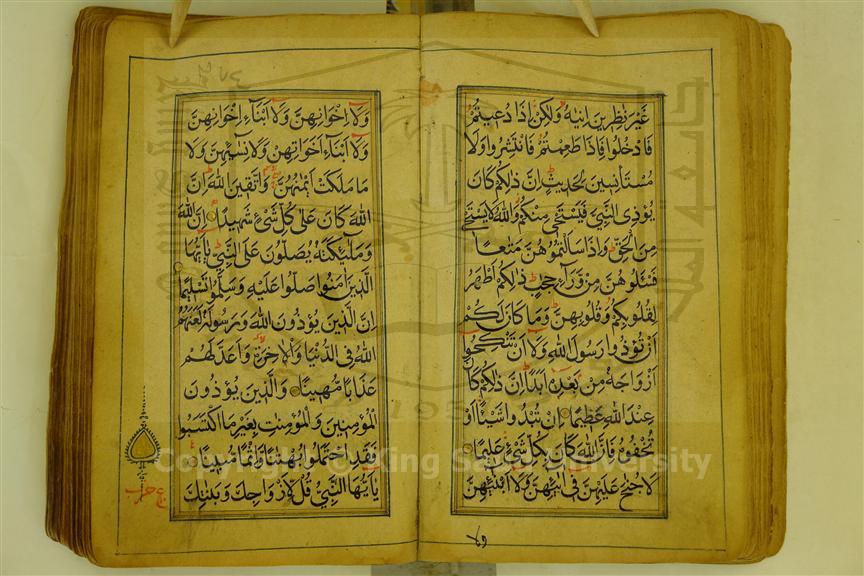 غَيْرَ نٰظِرِينَ اِنٰىهُ وَلٰكِنْ اِذَا دُعِيتُمْ
فَادْخُلُوا فَاِذَا طَعِمْتُمْ فَانْتَشِرُوا وَلَا
مُسْتَأْنِسِينَ لِحَدِيثٍ اِنَّ ذٰلِكُمْ كَانَ
يُؤْذِى النَّبِىَّ فَيَسْتَحْيٖ مِنْكُمْ وَاللّٰهُ لَا يَسْتَحْيٖ
مِنَ الْحَقِّ وَاِذَا سَاَلْتُمُوهُنَّ مَتَاعًا
فَسْئَلُوهُنَّ مِنْ وَرَآءِ حِجَابٍ ذٰلِكُمْ اَطْهَرُ
لِقُلُوبِكُمْ وَقُلُوبِهِنَّ وَمَا كَانَ لَكُمْ
اَنْ تُؤْذُوا رَسُولَ اللّٰهِ وَلَا اَنْ تَنْكِحُوا
اَزْوَاجَهُ مِنْ بَعْدِهِ اَبَدًا اِنَّ ذٰلِكُمْ كَانَ
عِنْدَ اللّٰهِ عَظِيمًا اِنْ تُبْدُوا شَيْئًا اَوْ
تُخْفُوهُ فَاِنَّ اللّٰهَ كَانَ بِكُلِّ شَىْءٍ عَلِيمًا
لَا جُنَاحَ عَلَيْهِنَّ فِى اٰبَآئِهِنَّ وَلَا اَبْنَآئِهِنَّ
ولا
وَلَا اِخْوَانِهِنَّ وَلَا اَبْنَآءِ اِخْوَانِهِنَّ
وَلَا اَبْنَآءِ اَخَوَاتِهِنَّ وَلَا نِسَآئِهِنَّ وَلَا
مَا مَلَكَتْ اَيْمٰنُهُنَّ وَاتَّقِينَ اللّٰهَ اِنَّ
اللّٰهَ كَانَ عَلٰى كُلِّ شَىْءٍ شَهِيدًا اِنَّ اللّٰهَ
وَمَلٰٓئِكَتَهُ يُصَلُّونَ عَلَى النَّبِىِّ يٰاَيُّهَا
الَّذِينَ اٰمَنُوا صَلُّوا عَلَيْهِ وَسَلِّمُوا تَسْلِيمًا
اِنَّ الَّذِينَ يُؤْذُونَ اللّٰهَ وَرَسُولَهُ لَعَنَهُمُ
اللّٰهُ فِى الدُّنْيَا وَالْاٰخِرَةِ وَاَعَدَّ لَهُمْ
عَذَابًا مُهِينًا وَالَّذِينَ يُؤْذُونَ
الْمُؤْمِنِينَ وَالْمُؤْمِنٰتِ بِغَيْرِ مَا اكْتَسَبُوا
فَقَدِ احْتَمَلُوا بُهْتَانًا وَاِثْمًا مُبِينًا
يٰاَيُّهَا النَّبِىُّ قُلْ لِاَزْوَاجِكَ وَبَنٰتِكَ
Copyright © King Saud University
1957